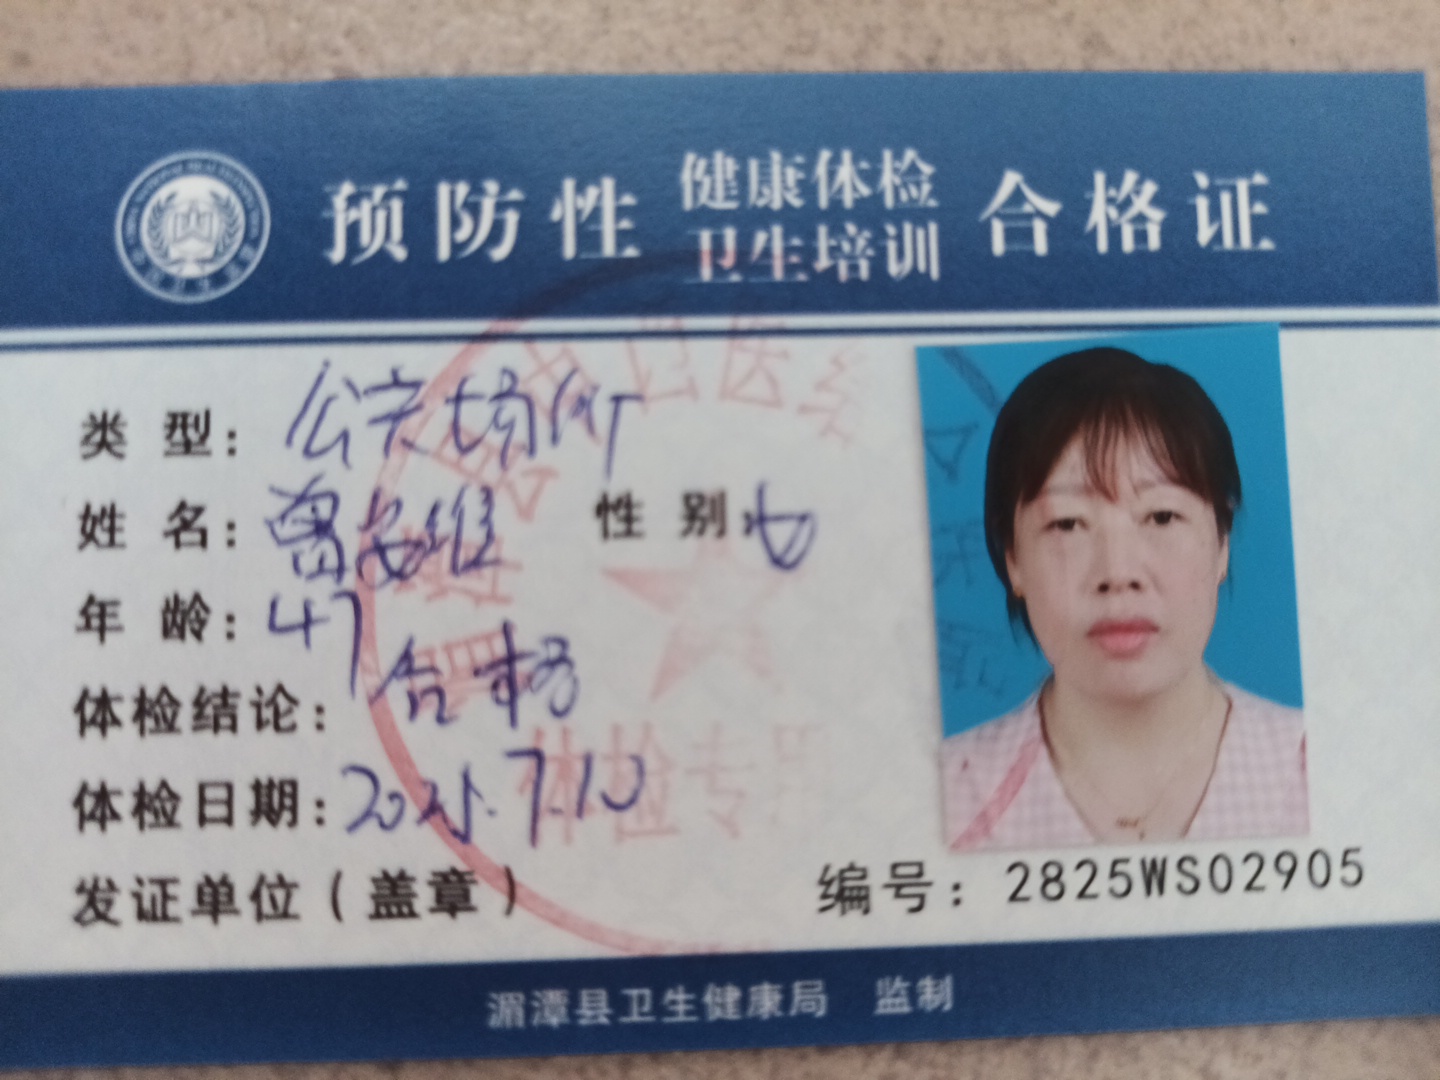 预防性 健康体检 卫生培训 合格证
类 型：公共场所
姓 名：曾安维 性 别 女
年 龄：47
体检结论：合格
体检日期：2025.7.10
发证单位（盖章）
编号：2825WS02905
体检专用
湄潭县卫生健康局 监制